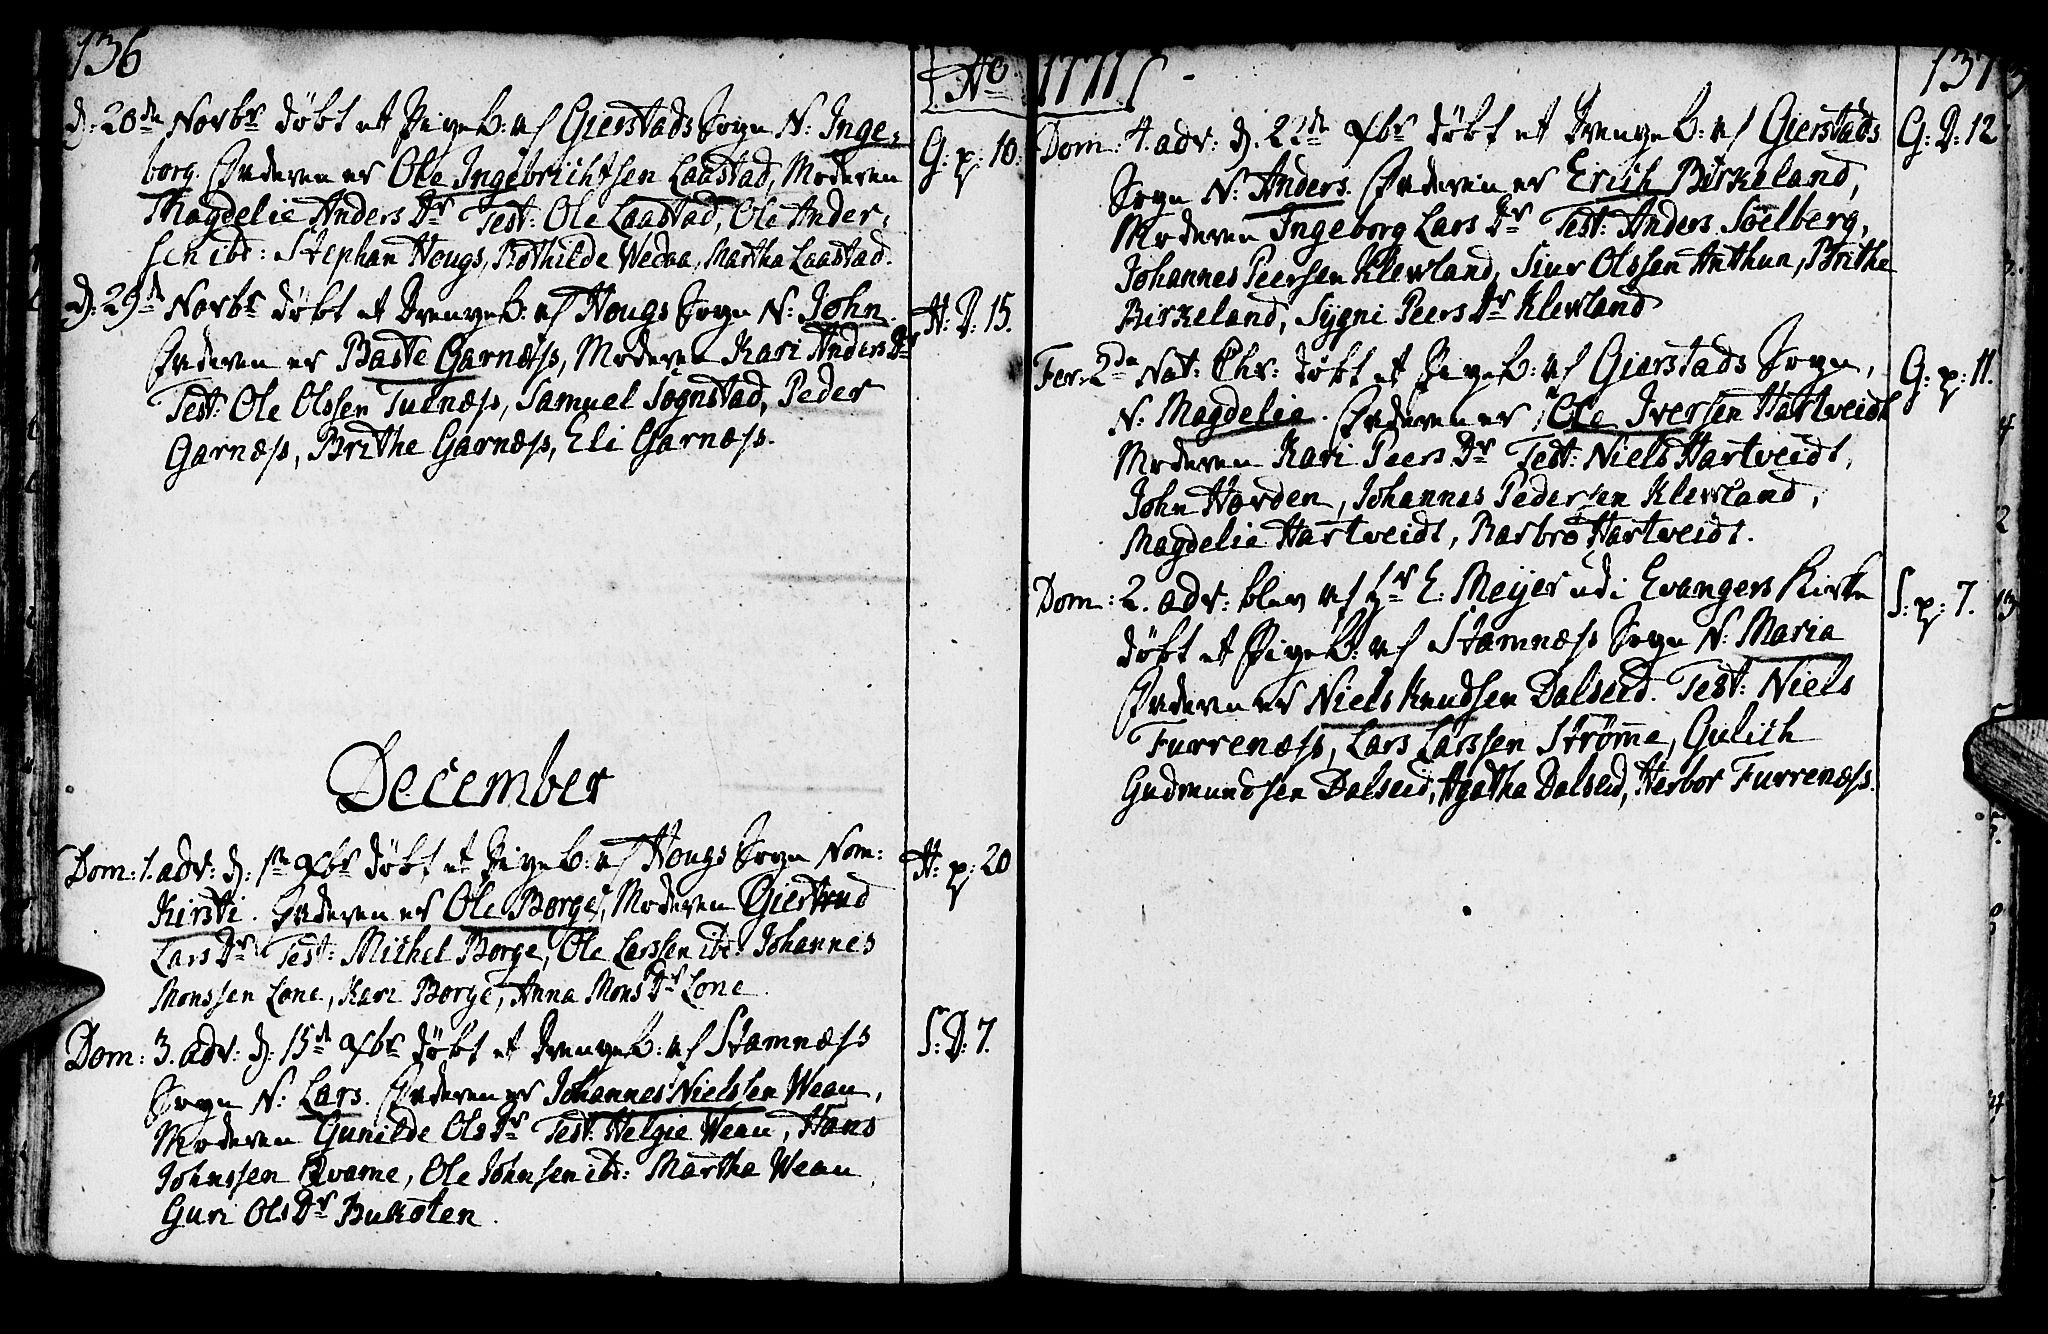 136
Ao.
d: 20de Novbr døbt et Pigeb: af Gierstads Sogn N: Inge,
borg. Faderen er Ole Ingebrichtsen Laastad, Moderen
Magdelie Anders Dr Test: Ole Laastad, Ole Ander,
sen ibd: Stephan Hougs, Bothilde Wedaa, Martha Laastad.
G: p: 10.
d: 29de Novbr døbt et Drengeb: af Hougs Sogn N: John.
Faderen er Baste Garnæss, Moderen Kari Anders Dr
Test: Ole Olssen Tuenæss, Samuel Sognstad, Peder
Garnæss, Brithe Garnæss, Eli Garnæss.
H: D: 15.
December
Dom: 1. adv: d: 1te Xbr døbt et Pigeb: af Hougs Sogn Nom:
Kirsti. Faderen er Ole Borge, Moderen Giertrud
Lars Dr Test: Michel Borge, Ole Larssen ibd: Johannes
Monssen Lone, Kari Borge, Anna Mons Dr Lone.
H: p: 20
Dom: 3. adv: d: 15de Xbr døbt et Drengeb: af Stamnæss
Sogn N: Lars. Faderen er Johannes Nielssen Weau,
Moderen Gunilde Ols Dr Test: Helgie Weau, Hans
Johnssen Qvame, Ole Johnsen ibd: Martha Weau,
Guri Ols Dr Bukoten.
S: D: 7.
1771
137
Dom: 4. adv: d: 22de Xbr døbt et Drengeb: af Gierstads
Sogn N: Anders. Faderen er Erich Birkeland,
Moderen Ingeborg Lars Dr Test: Anders Soelberg,
Johannes Peersen Klewland, Siur Olssen Anthun, Brithe
Birkeland, Sygni Peers Dr Klewland
G: D: 12
Fer: 2da Nat: Chr: døbt et Pigeb: af Gierstads Sogn,
N: Magdelia. Faderen er Ole Iversen Hartveidt
Moderen Kari Peers Dr Test: Niels Hartveidt,
John Hørden, Johannes Pedersen Klewland,
Magdelia Hartveidt, Barbro Hartveidt.
G: p: 11.
Dom: 2. adv: blev af Hr E: Meyer udi Evangers Kirke
døbt et Pigeb: af Stamnæss Sogn N: Maria
Faderen er Niels Knudsen Dalseid. Test: Niels
Furrenæss, Lars Larssen Strømme, Gulich
Gudmundsen Dalseid, Agatha Dalseid, Herbor Furrenæss.
S: p: 7.